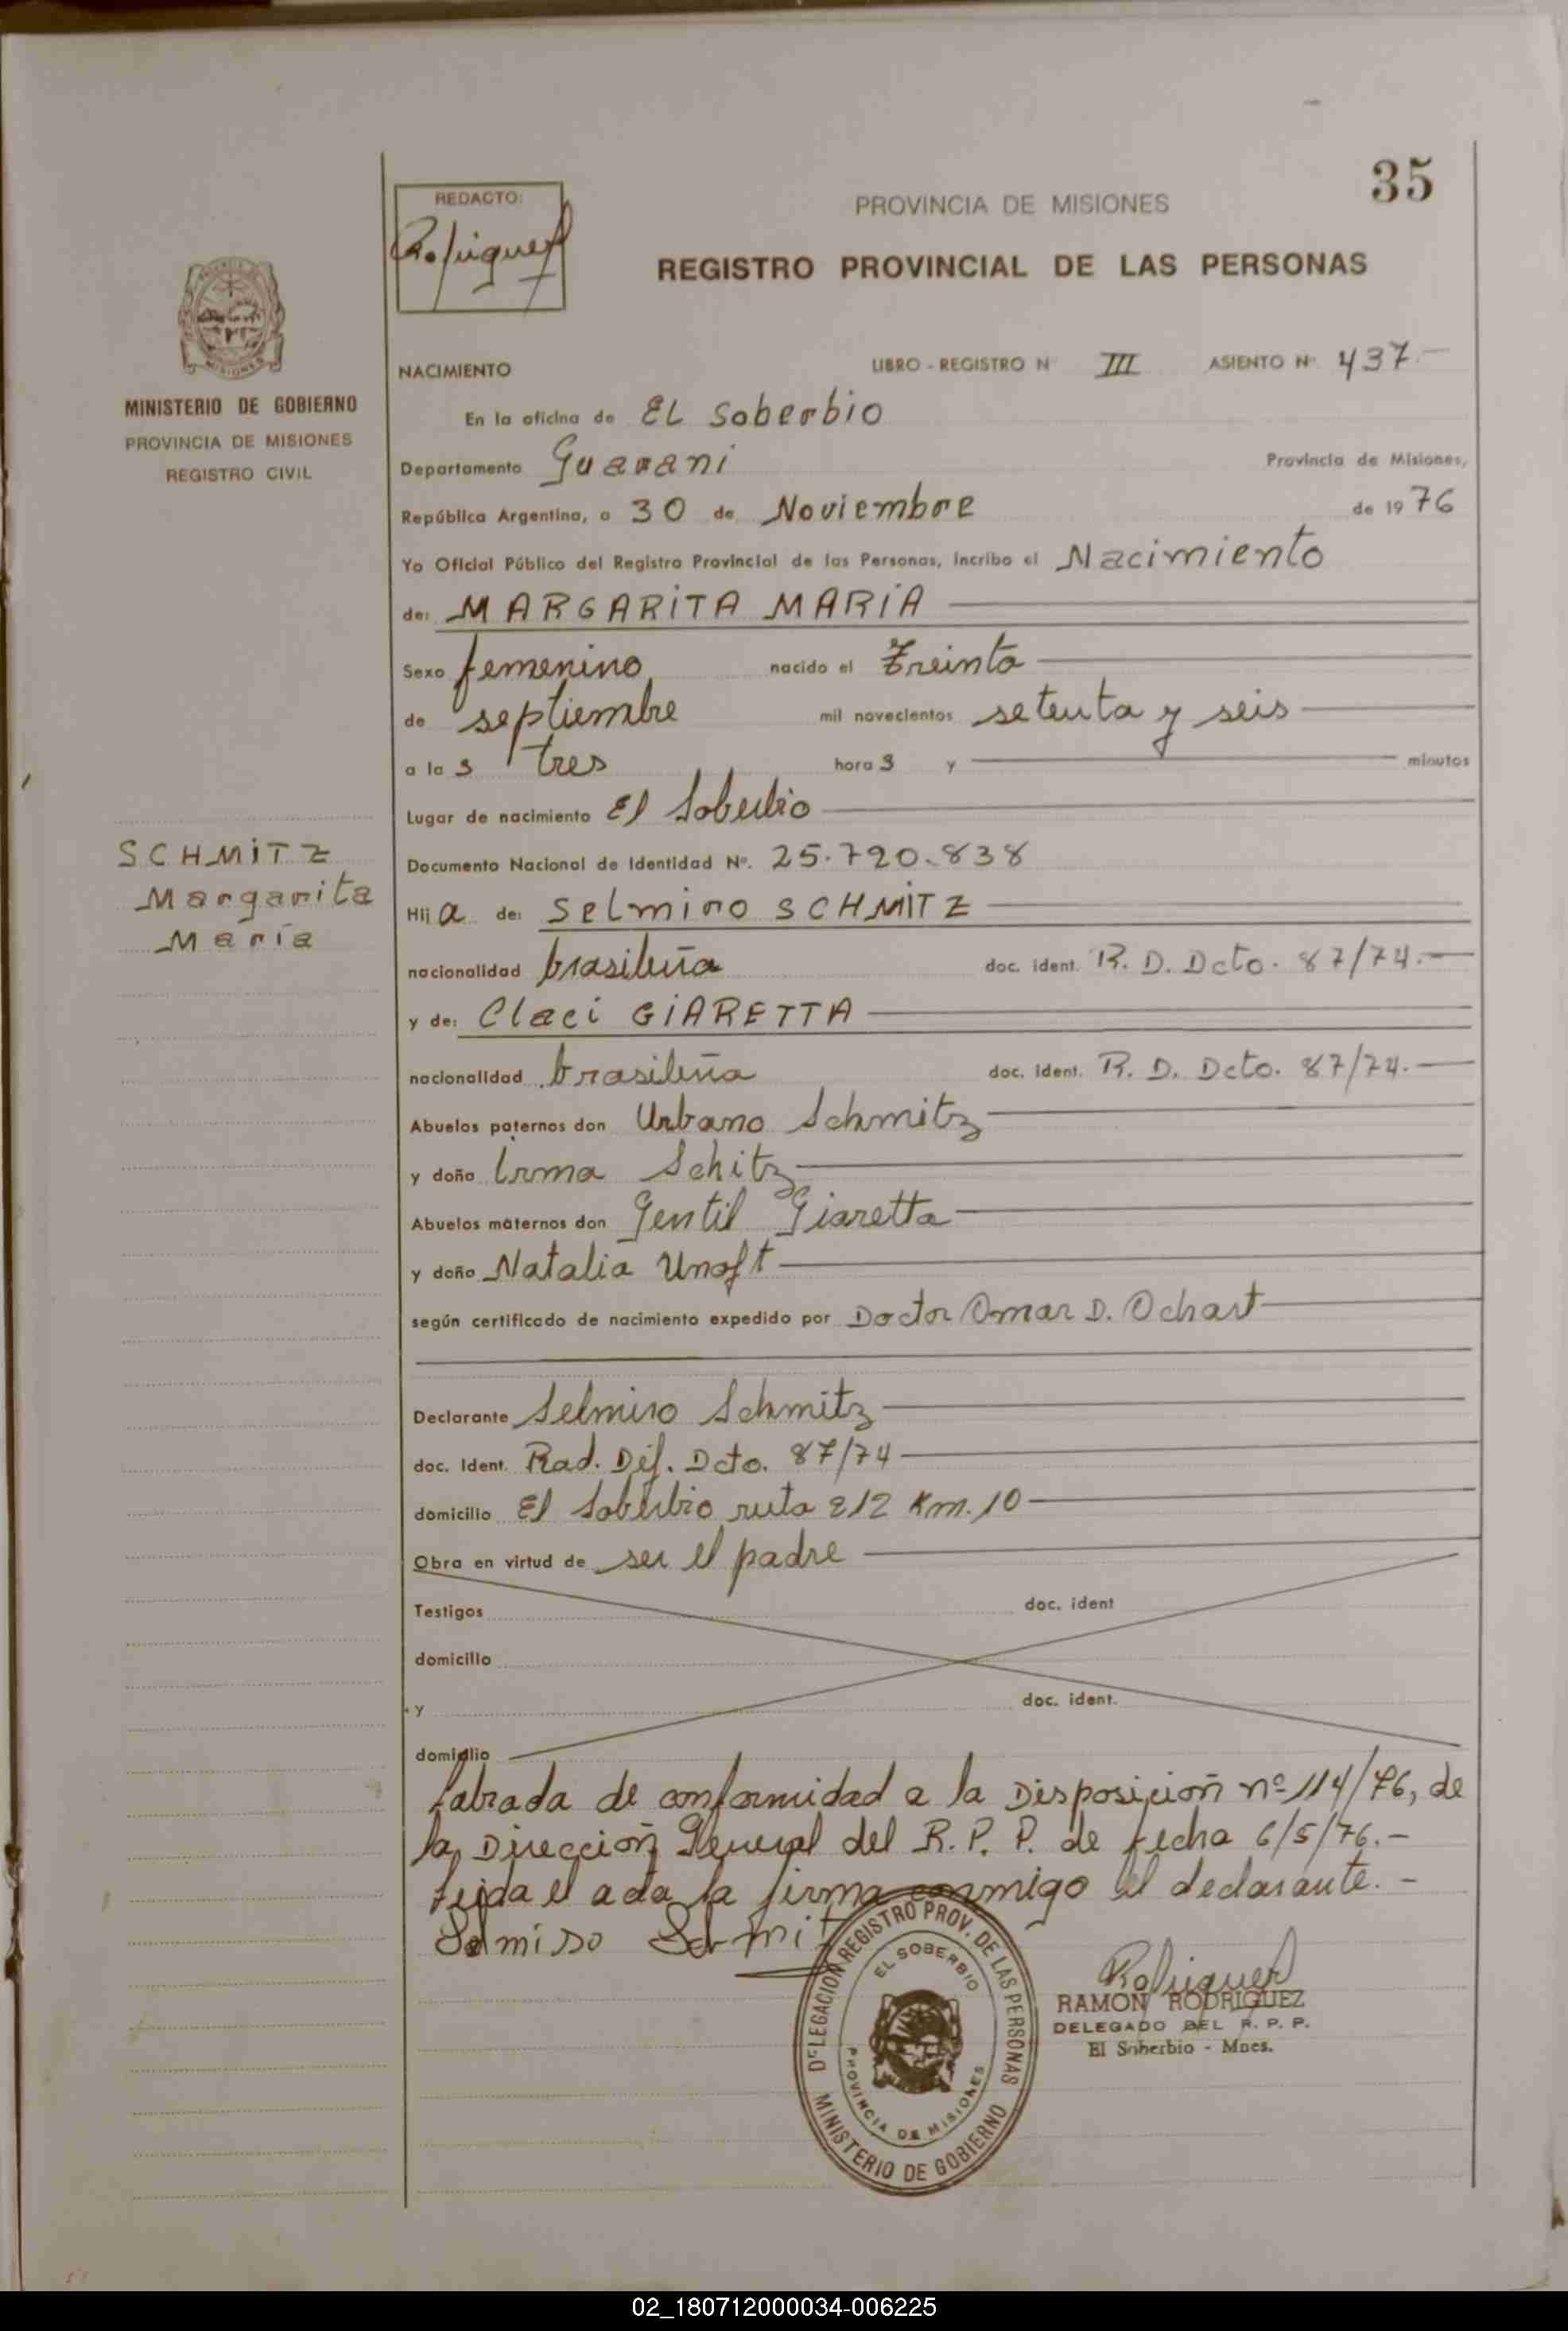 35
REDACTO:
Rodriguez
PROVINCIA DE MISIONES
REGISTRO PROVINCIAL DE LAS PERSONAS
MINISTERIO DE GOBIERNO
PROVINCIA DE MISIONES
REGISTRO CIVIL
NACIMIENTO LIBRO - REGISTRO Nº III ASIENTO Nº 437.-
En la oficina de EL Soberbio
Departamento Guarani Provincia de Misiones,
República Argentina, a 30 de Noviembre de 1976
Yo Oficial Público del Registro Provincial de las Personas, incribo el Nacimiento
de: MARGARITA MARIA
Sexo femenino nacido el Treinta
de septiembre mil novecientos setenta y seis
a las tres horas y minutos
Lugar de nacimiento El Soberbio
SCHMITZ
Margarita
María
Documento Nacional de Identidad Nº. 25.720.838
Hija de: Selmiro SCHMITZ
nacionalidad brasileña doc. ident. R. D. Dcto. 87/74.-
y de: Claci GIARETTA
nacionalidad brasileña doc. ident. R. D. Dcto. 87/74.-
Abuelos paternos don Urbano Schmitz
y doña Irma Schitz
Abuelos maternos don Gentil Giaretta
y doña Natalia Unaft
según certificado de nacimiento expedido por Doctor Omar D. Ochart
Declarante Selmiro Schmitz
doc. Ident. Rad. Def. Dcto. 87/74
domicilio El Soberbio ruta 212 Km. 10
Obra en virtud de ser el padre
Testigos doc. ident
domicilio
y doc. ident.
domicilio
Labrada de conformidad a la Disposición nº 114/76, de
la Dirección General del R. P. P. de fecha 6/5/76.-
Leida el acta la firma conmigo el declarante. -
Selmiro Schmitz
DELEGACION REGISTRO PROV. DE LAS PERSONAS
EL SOBERBIO
PROVINCIA DE MISIONES
MINISTERIO DE GOBIERNO
Rodriguez
RAMON RODRIGUEZ
DELEGADO DEL R. P. P.
El Soberbio - Mnes.
02_180712000034-006225